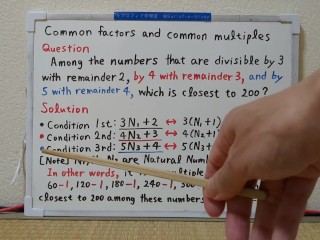 Common factors and common multiples
Question
Among the numbers that are divisible by 3
with remainder 2, by 4 with remainder 3, and by
5 with remainder 4, which is closest to 200?
Solution
• Condition 1st: 3N₁+2 ↔ 3(N₁+1)
• Condition 2nd: 4N₂+3 ↔ 4(N₂+1)
Condition 3rd: 5N₃+4 ↔ 5(N₃
[Note] N₁, N₂ are Natural Num
In other words, it
60-1, 120-1, 180-1, 240-1, 30
closest to 200 among these numbers